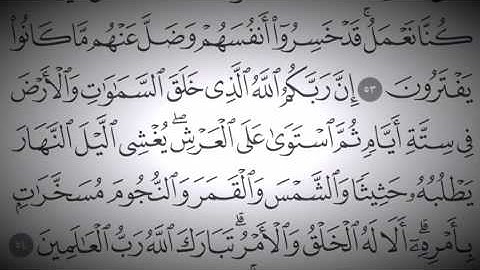 كُنَّا نَعْمَلُ ۚ قَدْ خَسِرُوٓا۟ أَنفُسَهُمْ وَضَلَّ عَنْهُم مَّا كَانُوا۟
يَفْتَرُونَ ٥٣ إِنَّ رَبَّكُمُ ٱللَّهُ ٱلَّذِى خَلَقَ ٱلسَّمَـٰوَٰتِ وَٱلْأَرْضَ
فِى سِتَّةِ أَيَّامٍ ثُمَّ ٱسْتَوَىٰ عَلَى ٱلْعَرْشِ ۖ يُغْشِى ٱلَّيْلَ ٱلنَّهَارَ
يَطْلُبُهُۥ حَثِيثًا وَٱلشَّمْسَ وَٱلْقَمَرَ وَٱلنُّجُومَ مُسَخَّرَٰتٍۭ
بِأَمْرِهِۦٓ ۗ أَلَا لَهُ ٱلْخَلْقُ وَٱلْأَمْرُ ۗ تَبَارَكَ ٱللَّهُ رَبُّ ٱلْعَـٰلَمِينَ ٥٤